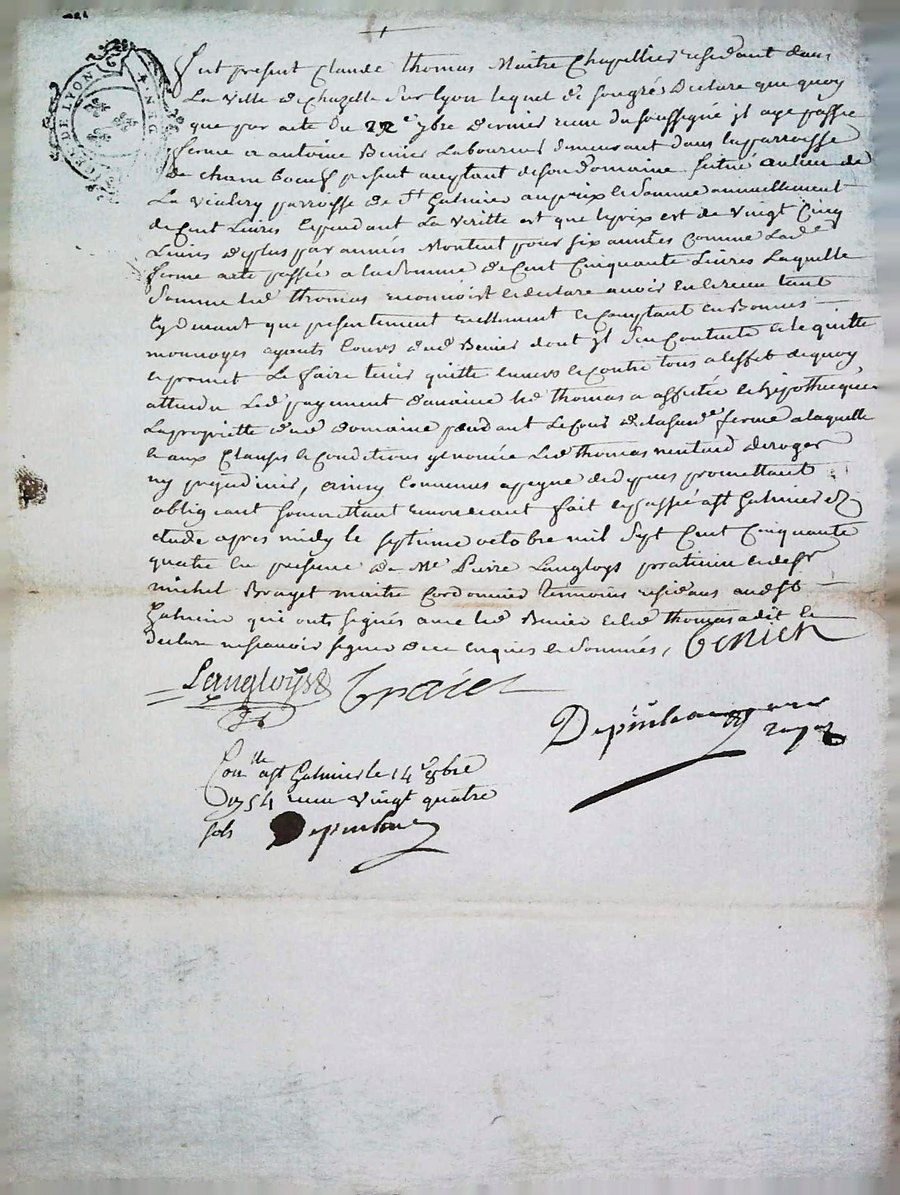 G.N. DE LYON
fut present Claude thomas Maitre Chapellier residant dans
La ville de Chazelle sur lyon lequel de son gré Declare que quoy
que par acte du 22e 7bre dernier recu du soussigné jl aye passé
fferme a antoine Benier Laboureur demeurant dans la parroisse
de cham boeuf present acceptant de son domaine scitué au lieu de
La parroisse de St Galmier au prix et somme annuellement
de Cent Livres cependant La veritté est que le prix est de vingt Cinq
Livres de plus par années Montent pour six années comme Lade
ferme acte passée a la somme de Cent Cinquante Livres Laquelle
somme led thomas reconnoist et declare avoir eu et receu tant
cydevant que presentement reellement et comptant en Bonnes
monnoyes ayants Cours dud Benier dont jl s'en Contente et le quitte
et promet Le faire tenir quitte envers et contre tous a l'effet de quoy
attendu Led payement d'avance led thomas a affectée et hipothequée
La proprietté dud domaine pendant Le Cours de lasusde ferme a laquelle
et aux Clauses et Conditions y enoncée Led thomas n'entend deroger
ny prejudicier, promettant
obligeant soumettant renonceant fait et passé a St Galmier
etude apres midy le septieme octobre mil sept Cent Cinquante
quatre en presence de Me Pierre Langloys praticien et de sr
michel Brayet maitre Cordonnier temoins residans aud St
Galmier qui onts signés avec led Benier et led thomas a dit et
declare ne scavoir signer de ce enquis et sommés, benier
Langloys Braiet
Depinhac
Conlle a St Galmier le 14e 8bre
1754 recu vingt quatre
sols Depinhac